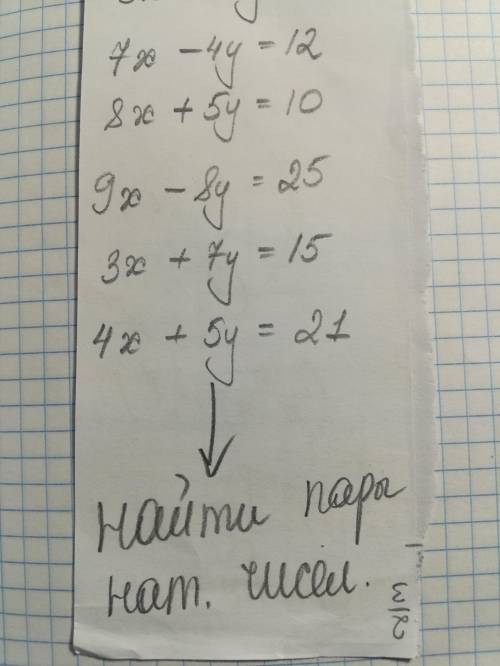 7x - 4y = 12
8x + 5y = 10
9x - 8y = 25
3x + 7y = 15
4x + 5y = 21
найти пары
нат. чисел.